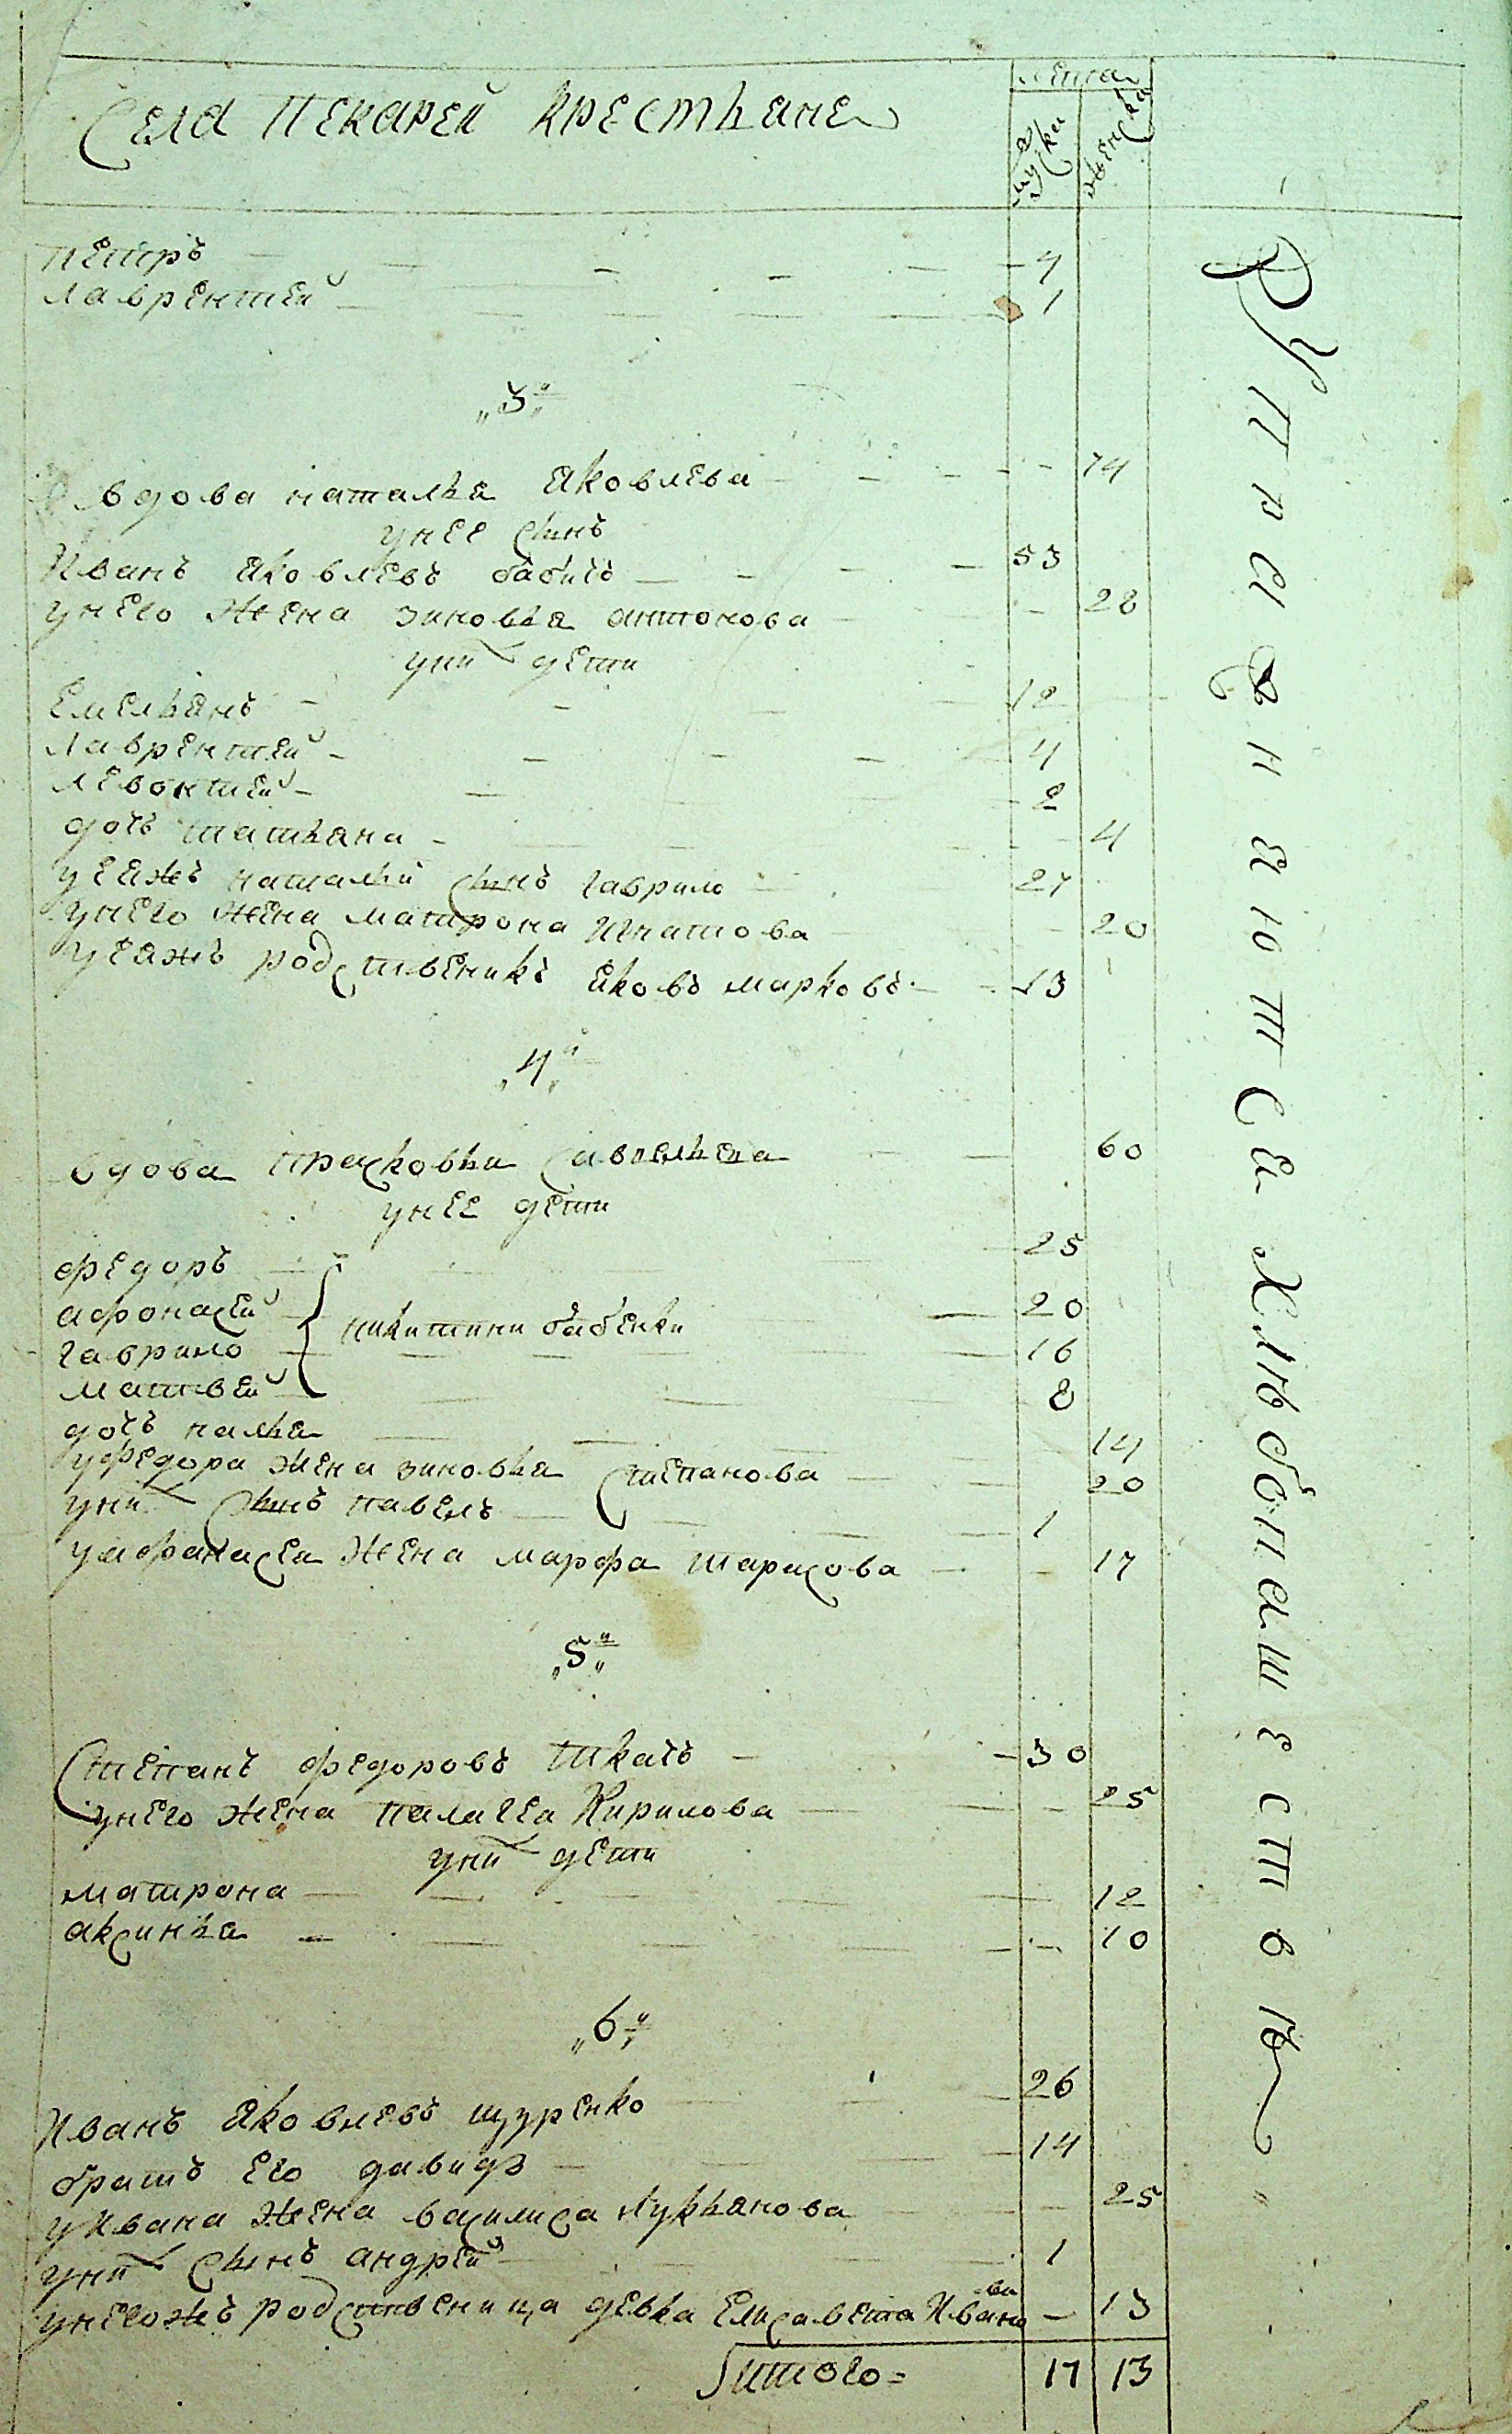 лета
Села Пекарей Крестьяне
мужска женска
петръ 7
лаврентей 1
„3й„
вдова наталья яковлева 74
у нее сынъ
Иванъ яковлевъ бабичъ 53
у него жена зиновья антонова 28
у ни{х} дети
Емельянъ 12
лаврентей 4
левонтей 2
дочь татьяна 4
у еяжъ натальи сынъ гаврило 27
у него жена матрона Игнатова 20
у еяжъ родственикъ яковъ марковъ 13
„4й„
вдова прасковья савельева 60
у нее дети
федоръ 25
афонасей 20
никитини бабенки
гаврило 16
матвей 8
дочь 14
у федора жена зиновья степанова 20
у них сынъ павелъ 1
у афанасея жена марфа тарасова 17
„5й„
Степанъ федоровъ ткачъ 30
у него жена палагея Кирилова 25
у них дети
матрона 12
аксинья 10
„6й„
Иванъ яковлевъ щуренко 26
братъ Его давидъ 14
у Ивана жена василиса лукьянова 25
у них сынъ андрей 1
у негожъ родственица девка Елисавета Иванова 13
итого 17 13
Упражняются хлебопашествѣ